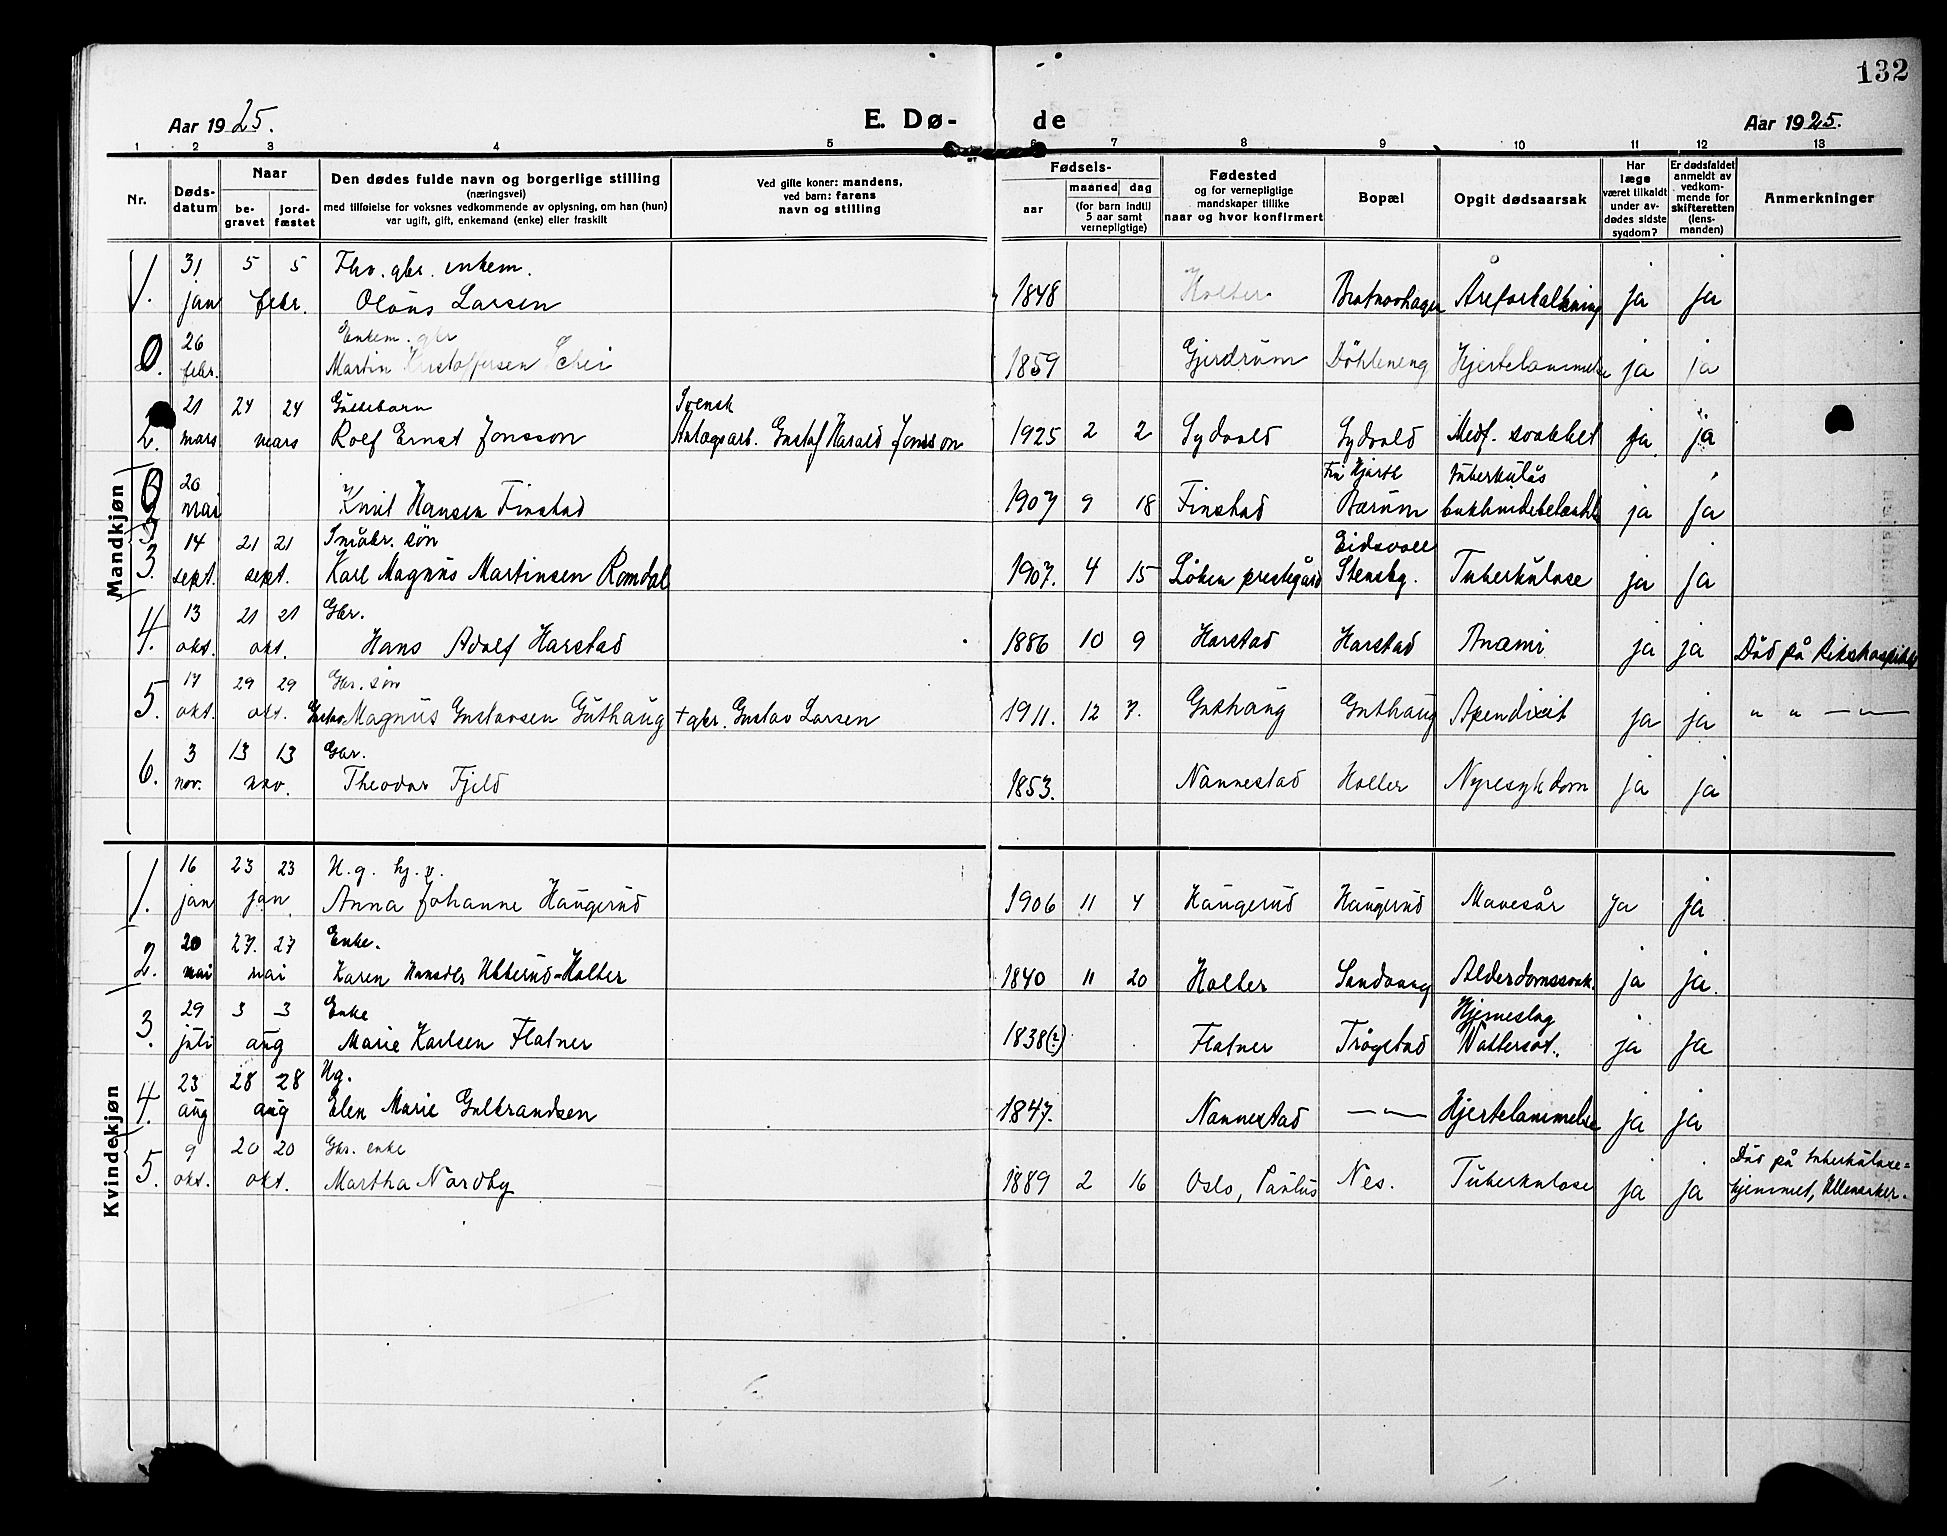 132
Aar 1925.
E. Dø-
de
Aar 1925.
1 2 3 4 5 6 7 8 9 10 11 12 13
Nr.
Døds-
datum
Naar
be-
gravet
jord-
fæstet
Den dødes fulde navn og borgerlige stilling
(næringsvei)
med tilføielse for voksnes vedkommende av oplysning, om han (hun)
var ugift, gift, enkemand (enke) eller fraskilt
Ved gifte koner: mandens,
ved barn: farens
navn og stilling
Fødsels-
aar
maaned
dag
(for barn indtil
5 aar samt
vernepligtige)
Fødested
og for vernepligtige
mandskaper tillike
naar og hvor konfirmert
Bopæl
Opgit dødsaarsak
Har
læge
været tilkaldt
under av-
dødes sidste
sygdom?
Er dødsfaldet
anmeldt av
vedkom-
mende for
skifteretten
(lens-
manden)
Anmerkninger
Mandkjøn
31 5 5 Fhv. gbr. enkem.
1. jan febr. Olaus Larsen 1848 Holter Åreforkalkning ja ja
26 Enkem. gbr
0. febr. Martin Kristoffersen Schei 1859 Gjerdrum Döhleneng Hjertelammelse ja ja
21 24 24 Guttebarn Svensk
2. mars mars Rolf Ernst Jonsson Anlægsarb. Gustaf Harald Jonsson 1925 2 2 Sydvold Sydvold Medf. svakhet ja ja
20 Hjorth tuberkuløs
0 mai Knut Hansen Finstad 1907 9 18 Finstad Bærum ja ja
14 21 21 Småbr. søn Eidsvoll
3. sept. sept. Karl Magnus Martinsen Romdal 1907. 4 15 Löken prestegård Stensby. Tuberkulose ja ja
13 21 21 Gbr.
4. okt. okt. Hans Adolf Harstad 1886 10 9 Harstad Harstad Anæmi ja ja Död på Rikshospitalet
17 29 29 Gbr. søn
5. okt. okt. Gustav Magnus Gustavsen Guthaug + gbr. Gustav Larsen 1911. 12 7. Guthaug Guthaug Apendixit ja ja " " — " —
3 13 13 Gbr.
6. nov. nov. Theodor Fjeld 1853. Nannestad Holler Nyresykdom ja ja
Kvindekjøn
16 23 23 U. g. hj. v.
1. jan jan Anna Johanne Haugerud 1906 11 4 Haugerud Haugerud Mavesår ja ja
20 27. 27 Enke.
2. mai mai Karen Hansdtr Ubberud-Holter 1840 11 20 Holter Sandvang Alderdomssvak. ja ja.
29 3 3 Enke Hjerneslag
3. juli aug Marie Karlsen Flatner 1838(?) Flatner Trögstad ja ja
23 28 28 Ug.
4. aug aug Elen Marie Gulbrandsen 1847. Nannestad — " — Hjertelammelse ja ja
9 20 20 Gbr. enke Död på tuberkulose-
5. okt. okt. Martha Nordby 1889 2 16 Oslo, Paulus Nes. Tuberkulose ja ja hjemmet, Ullensaker.